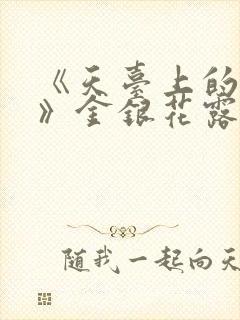 《天臺上的
》金銀花露
随我一起向天